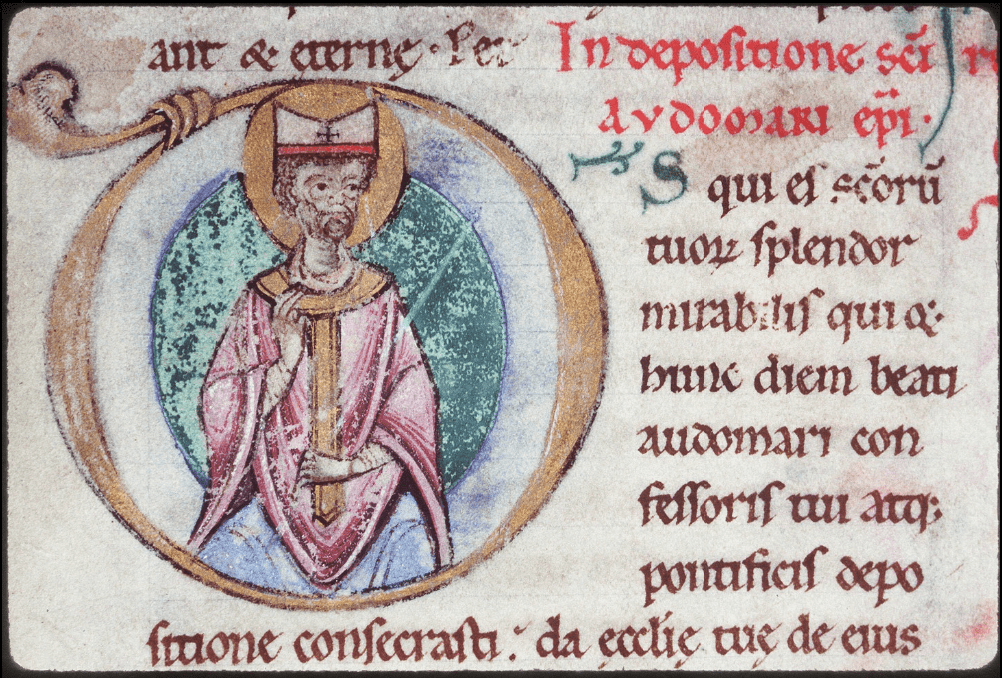 ant & eternę. Per In depositione sc̄i
Avdomari ep̄i.
Ds qui es sc̄orū
tuoꝝ splendor
mirabilis qui q;
hunc diem beati
audomari con
fessoris tui atq;
pontificis depo
sitione consecrasti: da ęcclię tuę de eius